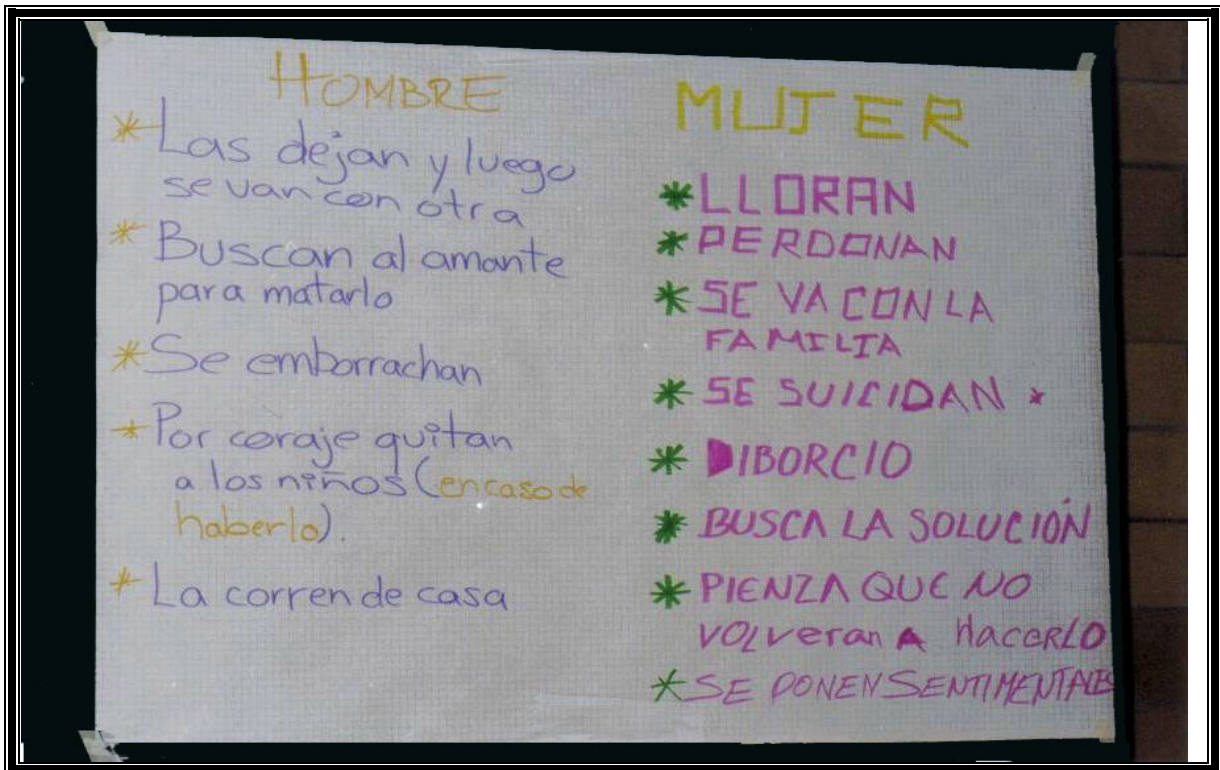 HOMBRE
* Las dejan y luego
se van con otra
* Buscan al amante
para matarlo
* Se emborrachan
* Por coraje quitan
a los niños (en caso de
haberlo).
* La corren de casa
MUJER
* LLORAN
* PERDONAN
* SE VA CON LA
FAMILIA
* SE SUICIDAN *
* DIBORCIO
* BUSCA LA SOLUCIÓN
* PIENZA QUE NO
VOLVERAN A HACERLO
* SE PONEN SENTIMENTALES